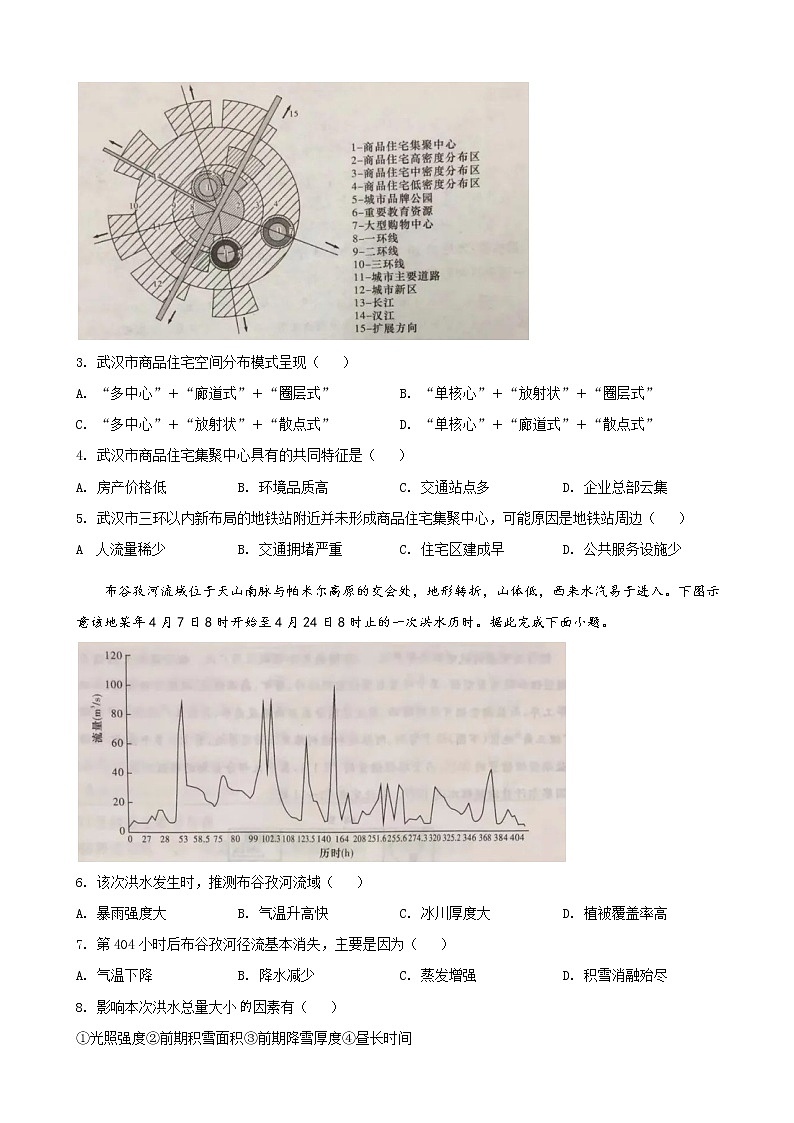 15
10
11
12
2
3
4
1-商品住宅集聚中心
2-商品住宅高密度分布区
3-商品住宅中密度分布区
4-商品住宅低密度分布区
5-城市品牌公园
6-重要教育资源
7-大型购物中心
8-一环线
9-二环线
10-三环线
11-城市主要道路
12-城市新区
13-长江
14-汉江
15-扩展方向
3. 武汉市商品住宅空间分布模式呈现（ ）
A. “多中心”＋“廊道式”＋“圈层式” B. “单核心”＋“放射状”＋“圈层式”
C. “多中心”＋“放射状”＋“散点式” D. “单核心”＋“廊道式”＋“散点式”
4. 武汉市商品住宅集聚中心具有的共同特征是（ ）
A. 房产价格低 B. 环境品质高 C. 交通站点多 D. 企业总部云集
5. 武汉市三环以内新布局的地铁站附近并未形成商品住宅集聚中心，可能原因是地铁站周边（ ）
A 人流量稀少 B. 交通拥堵严重 C. 住宅区建成早 D. 公共服务设施少
布谷孜河流域位于天山南脉与帕米尔高原的交会处，地形转折，山体低，西来水汽易于进入。下图示
意该地某年4月7日8时开始至4月24日8时止的一次洪水历时。据此完成下面小题。
流量(m³/s)
120
100
80
60
40
20
0
0 27 28 53 58.5 75 80 99 102.3 108 123.5 140 164 208 251.6 255.6 274.3 320 325.2 346 368 384 404
历时(h)
6. 该次洪水发生时，推测布谷孜河流域（ ）
A. 暴雨强度大 B. 气温升高快 C. 冰川厚度大 D. 植被覆盖率高
7. 第404小时后布谷孜河径流基本消失，主要是因为（ ）
A. 气温下降 B. 降水减少 C. 蒸发增强 D. 积雪消融殆尽
8. 影响本次洪水总量大小的因素有（ ）
①光照强度②前期积雪面积③前期降雪厚度④昼长时间